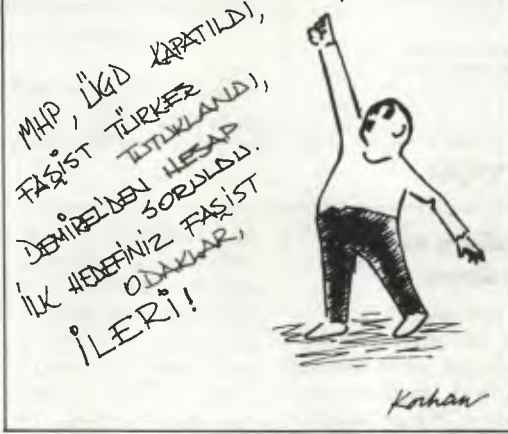 MHP, ÜGD KAPATILDI,
FAŞİST TÜRKEŞ
TUTUKLANDI,
DEMİREL'DEN HESAP
SORULDU.
İLK HEDEFİNİZ FAŞİST
ODAKLAR,
İLERİ!
Korhan